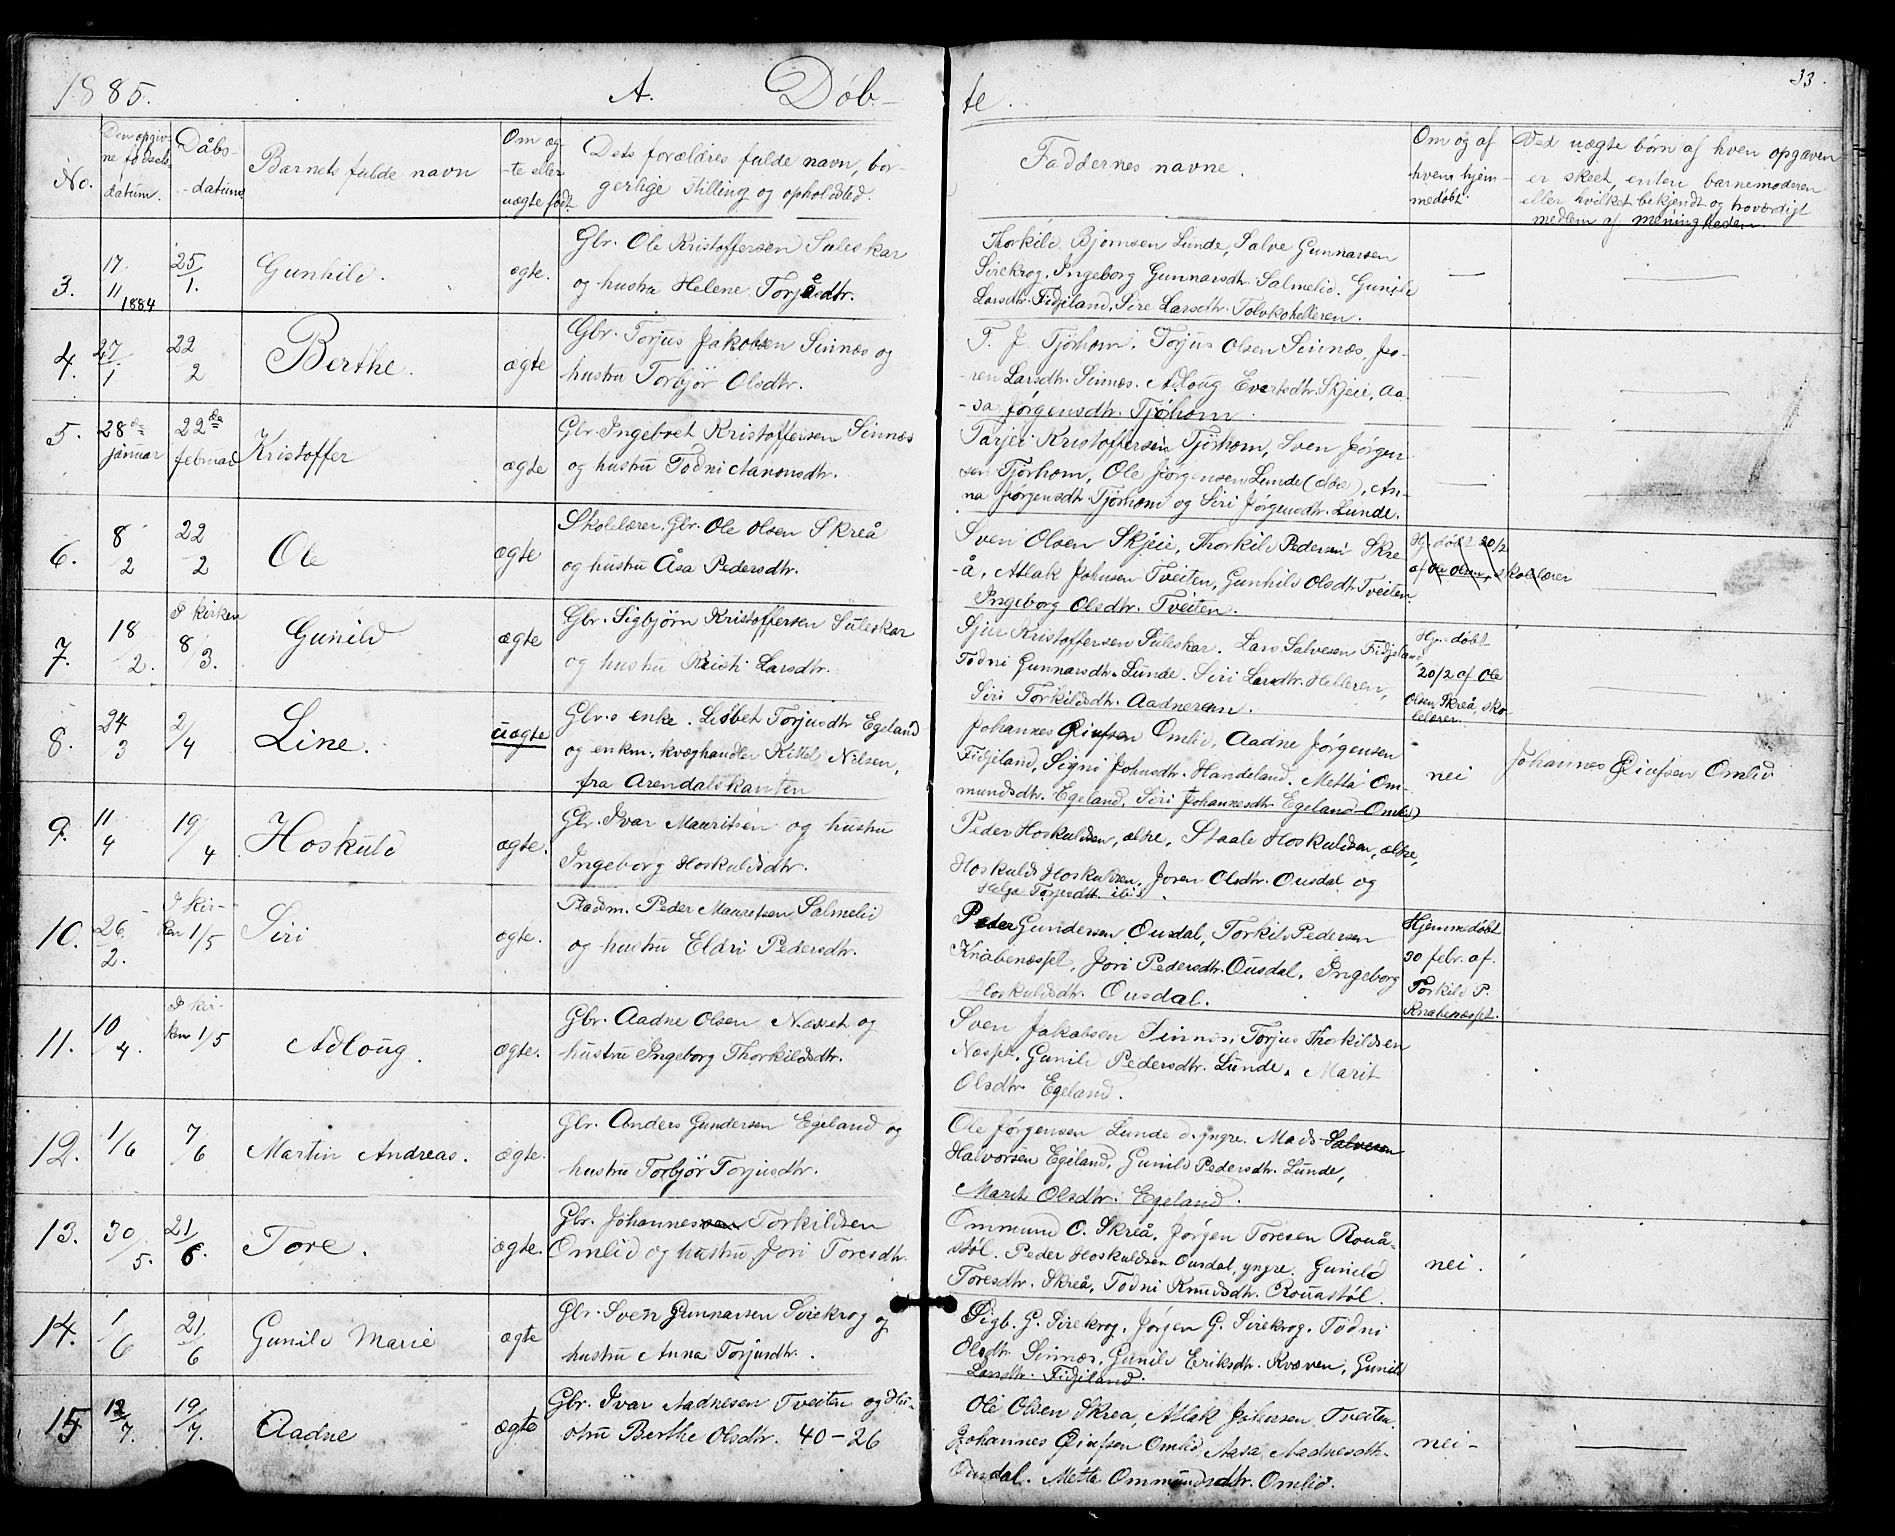 1885. A. Døb-
te.
33.
No.
Den opgiv-
ne fødsels-
datum.
Dåbs-
-datum
Barnets fulde navn
Om æg-
-te eller
uægte født.
Dets forældres fulde navn, bor-
gerlige stilling og opholdsted.
Faddernes navne.
Om og af
hvem hjem-
medøbt.
Ved uægte børn af hven opgaven
er skeet, enten barnemoderen
eller hvilket bekjendt og troværdigt
medlem af menigheden.
3.
17.
11 1884
25/1.
Gunhild.
ægte.
Gbr. Ole Kristoffersen Suleskar
og hustru Helene Torjåsdtr.
Thorkild Bjørnsen Lunde, Salve Gunnarsen
Sirekrog, Ingeborg Gunnarsdtr. Salmelid. Gunild
Larsdtr. Fidjeland, Sire Larsdtr.
4.
27/1
22/2
Berthe.
ægte
Gbr. Torjus Jakobsen Sinnes og
hustru Torbjør Olsdtr.
T. J. Tjørhom. Torjus Olsen Sinnæs, Jo-
-ren Larsdtr. Sinnæs. Adloug Evertsdtr. Skjeie, Aa-
-sa Jørgensdtr. Tjørhom.
5.
28de
januar
22de
februar
Kristoffer
ægte
Gbr. Ingebret Kristoffersen Sinnæs
og hustru Todni Aanonsdtr.
Tarjei Kristoffersen Tjørhom, Sven Jørgen-
sen Tjørhom, Ole Jørgensen Lunde (ælre), An-
na Jørgensdtr. Tjørhom og Siri Jørgensdtr. Lunde.
6.
8/2
22/2
Ole
ægte
Skolelærer, Gbr. Ole Olsen Skreå
og hustru Åsa Pedersdtr.
Sven Olsen Skjeie, Thorkild Pedersen Skre-
-å, Atlak Johnsen Tveiten, Gunhild Olsdtr. Tveiten.
Ingeborg Olsdtr. Tveiten.
Hj. døbt 20/2
af Ole Olsen, skolelærer
7.
18/2.
I kirken
8/3.
Gunild
ægte
Gbr. Sigbjørn Kristoffersen Suleskar
og hustru Kristi Larsdtr.
Sjur Kristoffersen Suleskar. Lars Salvesen Fidjeland
Todni Gunnarsdtr. Lunde. Siri Larsdtr. Helleren,
Siri Torkildsdtr. Aadneram.
Hj.-døbt
20/2 af Ole
Olsen Skreå, sko-
lelærer.
8.
24/3
2/4
Line.
uægte
Gbr.s enke. Lisbet Torjusdtr Egeland
og enkm. kvæghandler Kittel Nilsen,
fra Arendalskanten
Johannes Omlid, Aadne Jørgensen
Fidjeland, Signi Johnsdtr. Handeland. Metta Om-
mundsdtr. Egeland. Siri Johannesdtr. Egeland Omlid
nei
Johannes Omlid
9.
11/4
19/4
Hoskuld
ægte.
Gbr. Ivar Mauritsen og hustru
Ingeborg Hoskuldsdtr.
Peder Hoskuldsen, ælre, Staale Hoskuldsen, ælre,
Hoskuld Hoskuldsen, Joren Olsdtr. Ousdal og
Helga Torjusdtr. ibid.
10.
26/2.
I kir-
ken 1/5
Siri
ægte.
Pladsm. Peder Mauritsen Salmelid
og hustru Eldri Pedersdtr.
Peder Gundersen Ousdal, Torkild Pedersen
Knabenæsset, Jori Pedersdtr. Ousdal. Ingeborg
Hoskuldsdtr. Ousdal.
Hjemmedøbt
30 febr. af.
Torkild P.
Knabenæsset.
11.
10/4.
I kir-
ken 1/5
Adloug.
ægte.
Gbr. Aadne Olsen Næsset og
hustru Ingeborg Thorkildsdtr.
Sven Jakobsen Sinnæs, Torjus Thorkildsen
Næsset. Gunild Pedersdtr. Lunde. Marit
Olsdtr. Egeland.
12.
1/6
7/6
Martin Andreas.
ægte.
Gbr. Anders Gundersen Egeland og
hustru Torbjør Torjusdtr.
Ole Jørgensen Lunde d. yngre. Mads Salvesen
Halvorsen Egeland, Gunild Pedersdtr. Lunde,
Marit Olsdtr. Egeland.
13.
30/5.
21/6.
Tore.
ægte.
Gbr. Johannessen Torkildsen
Omlid og hustru Jori Toresdtr.
Ommund O. Skreå, Jørgen Toresen Rouå-
støl. Peder Hoskuldsen Ousdal, yngre. Gunild
Toresdtr. Skreå, Todni Knudsdtr. Rouastøl.
nei.
14.
1/6
21/6
Gunild Marie
ægte
Gbr. Sven Gunnarsen Sirekrog og
hustru Anna Torjusdtr.
Sigb. G. Sirekrog. Jørgen G. Sirekrog. Todni
Olsdtr. Sinnæs. Gunild Eriksdtr. Kvæven, Gunild
Larsdtr. Fidjeland.
15
12/7.
19/7.
Aadne
ægte
Gbr. Ivar Aadnesen Tveiten og Hu-
stru Berthe Olsdtr. 40-26
Ole Olsen Skreå, Atlak Johnsen Tveiten.
Johannes Omlid, Aasa Aadnesdtr.
Ousdal. Metta Ommundsdtr. Omlid.
nei-